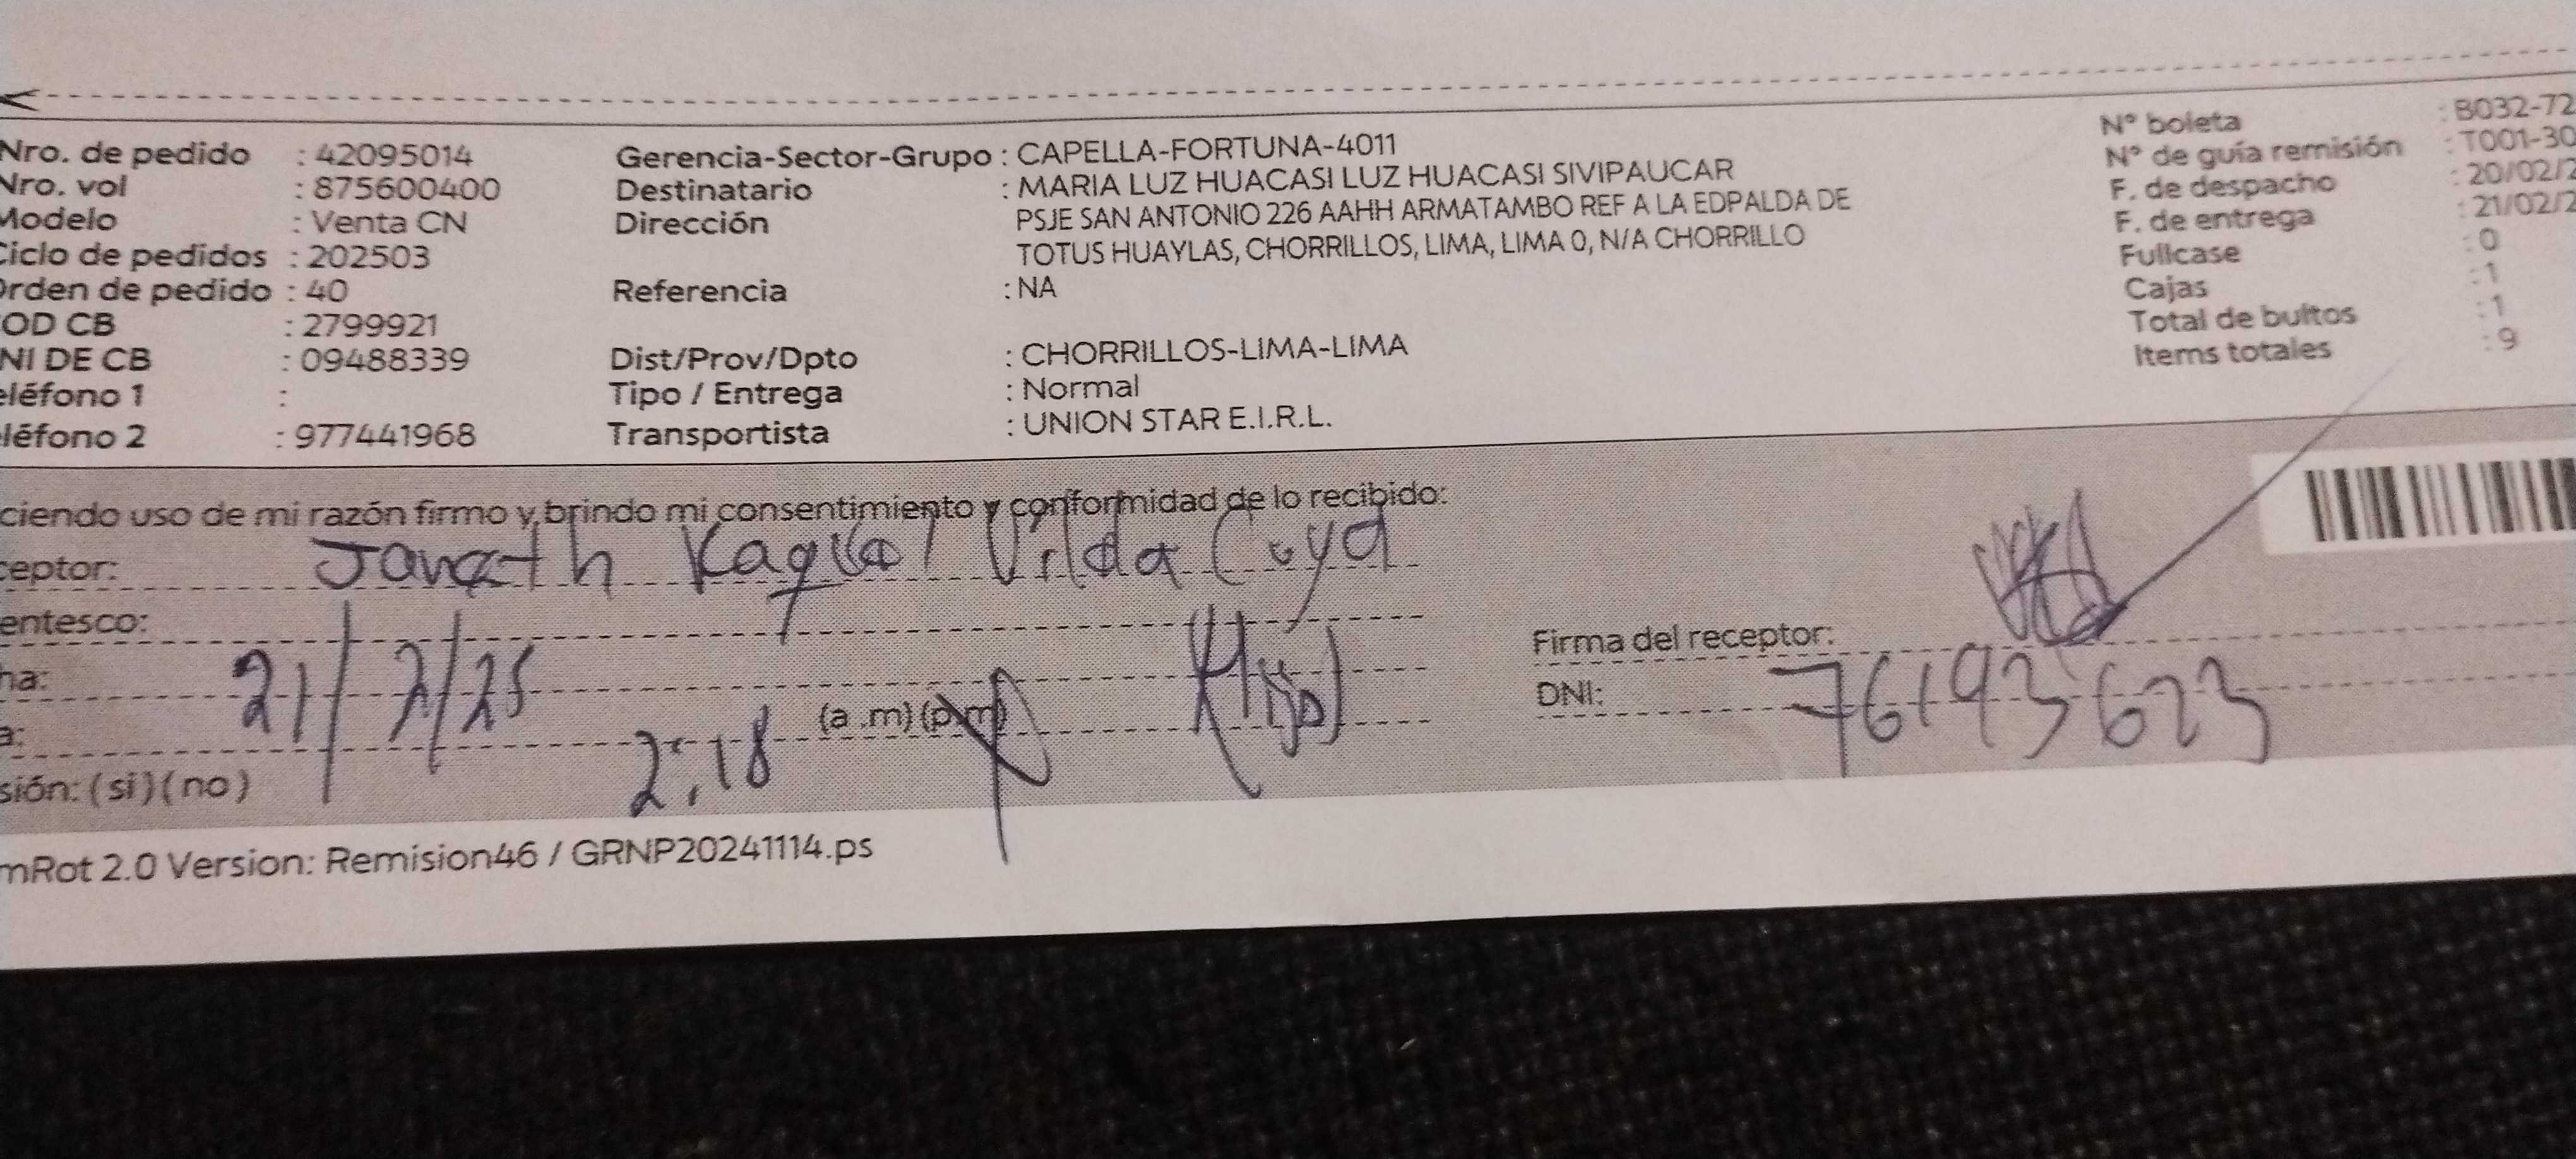 Nro. de pedido : 42095014 Gerencia-Sector-Grupo : CAPELLA-FORTUNA-4011 N° boleta : B032-72
Nro. vol : 875600400 Destinatario : MARIA LUZ HUACASI LUZ HUACASI SIVIPAUCAR N° de guía remisión : T001-30
Modelo : Venta CN Dirección PSJE SAN ANTONIO 226 AAHH ARMATAMBO REF A LA EDPALDA DE F. de despacho : 20/02/2
Ciclo de pedidos : 202503 TOTUS HUAYLAS, CHORRILLOS, LIMA, LIMA 0, N/A CHORRILLO F. de entrega : 21/02/2
Orden de pedido : 40 Referencia : NA Fullcase : 0
OD CB : 2799921 Cajas : 1
NI DE CB : 09488339 Dist/Prov/Dpto : CHORRILLOS-LIMA-LIMA Total de bultos : 1
eléfono 1 : Tipo / Entrega : Normal Items totales : 9
léfono 2 : 977441968 Transportista : UNION STAR E.I.R.L.
ciendo uso de mi razón firmo y brindo mi consentimiento y conformidad de lo recibido:
ceptor: Vilda
entesco: (Hijo) Firma del receptor:
ha: 21/2/25 DNI: 76193623
a: 2:18 (a.m) (p.m)
sión: (si) (no)
mRot 2.0 Version: Remision46 / GRNP20241114.ps